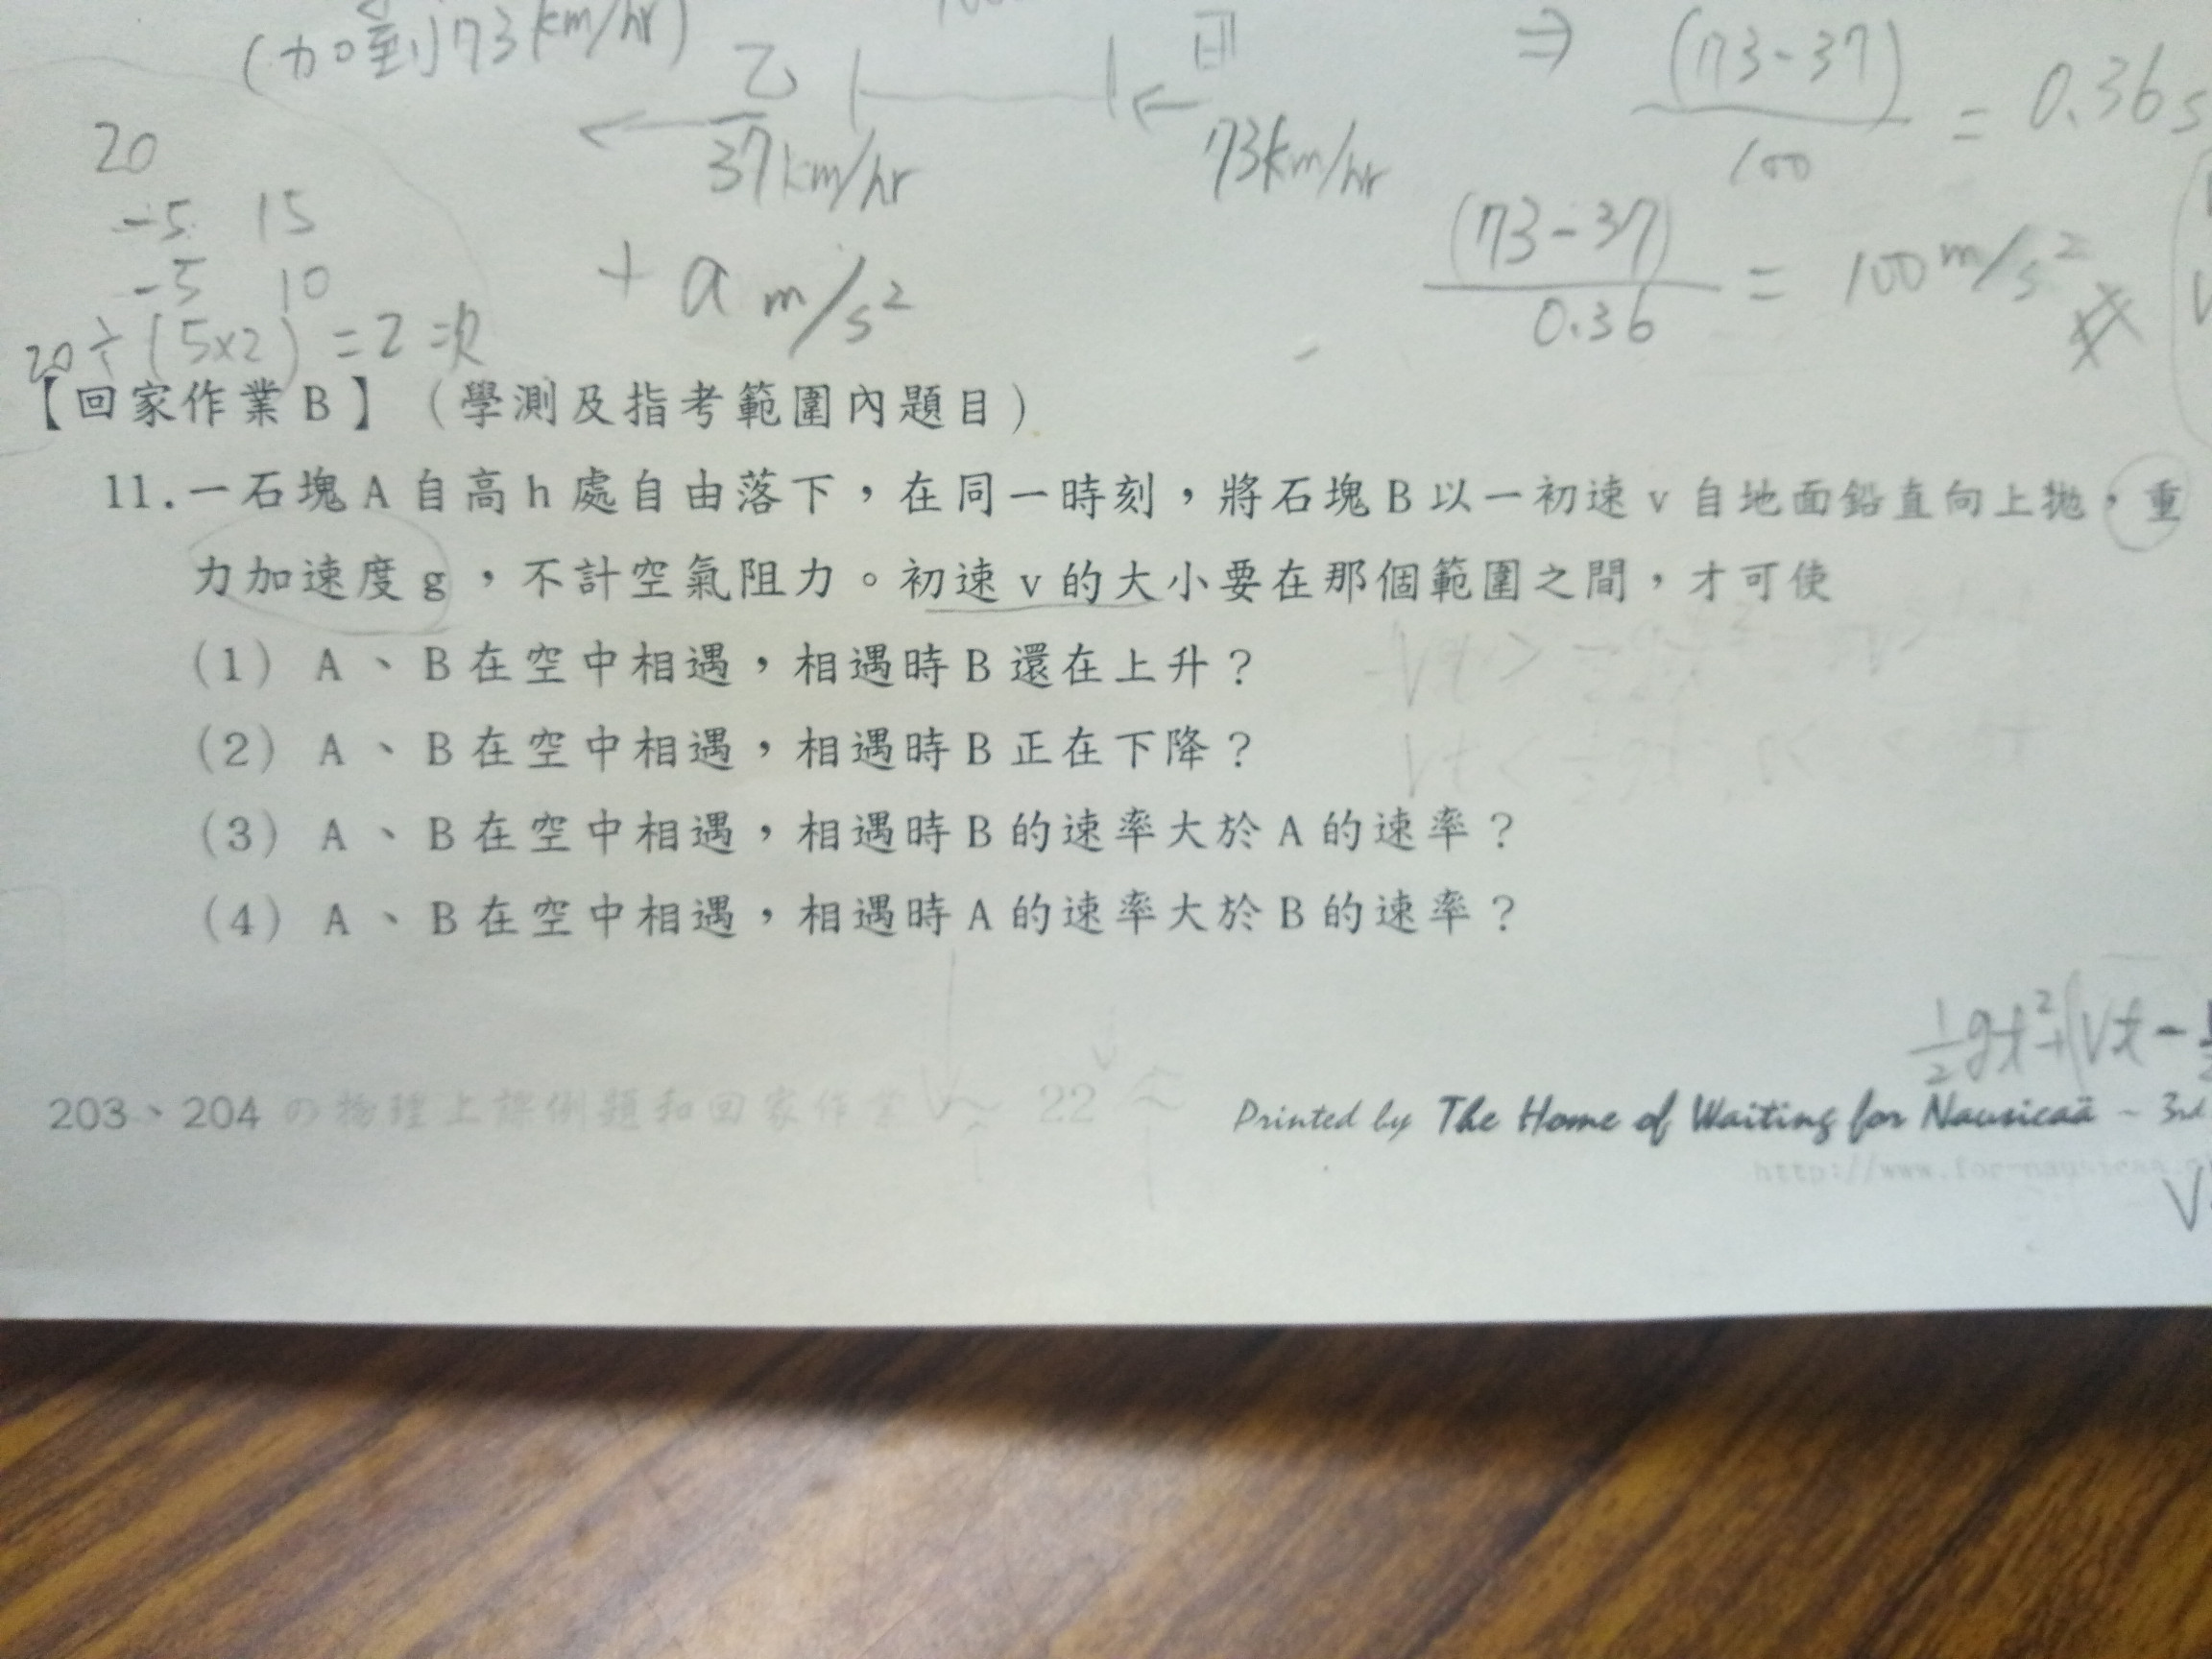 (加到73km/hr)
乙 甲
37km/hr 73km/hr
⇒ (73-37)/100 = 0.36s
20
-5 15
-5 10
20÷(5×2)=2次
+a m/s²
(73-37)/0.36 = 100 m/s²
【回家作業B】(學測及指考範圍內題目)
11.一石塊A自高h處自由落下，在同一時刻，將石塊B以一初速v自地面鉛直向上拋，重
力加速度g，不計空氣阻力。初速v的大小要在那個範圍之間，才可使
(1) A、B在空中相遇，相遇時B還在上升？
(2) A、B在空中相遇，相遇時B正在下降？
(3) A、B在空中相遇，相遇時B的速率大於A的速率？
(4) A、B在空中相遇，相遇時A的速率大於B的速率？
½gt²+(Vt-
203、204の物理上課例題和回家作業 22 Printed by The Home of Waiting for Nausicaä ~ 3rd